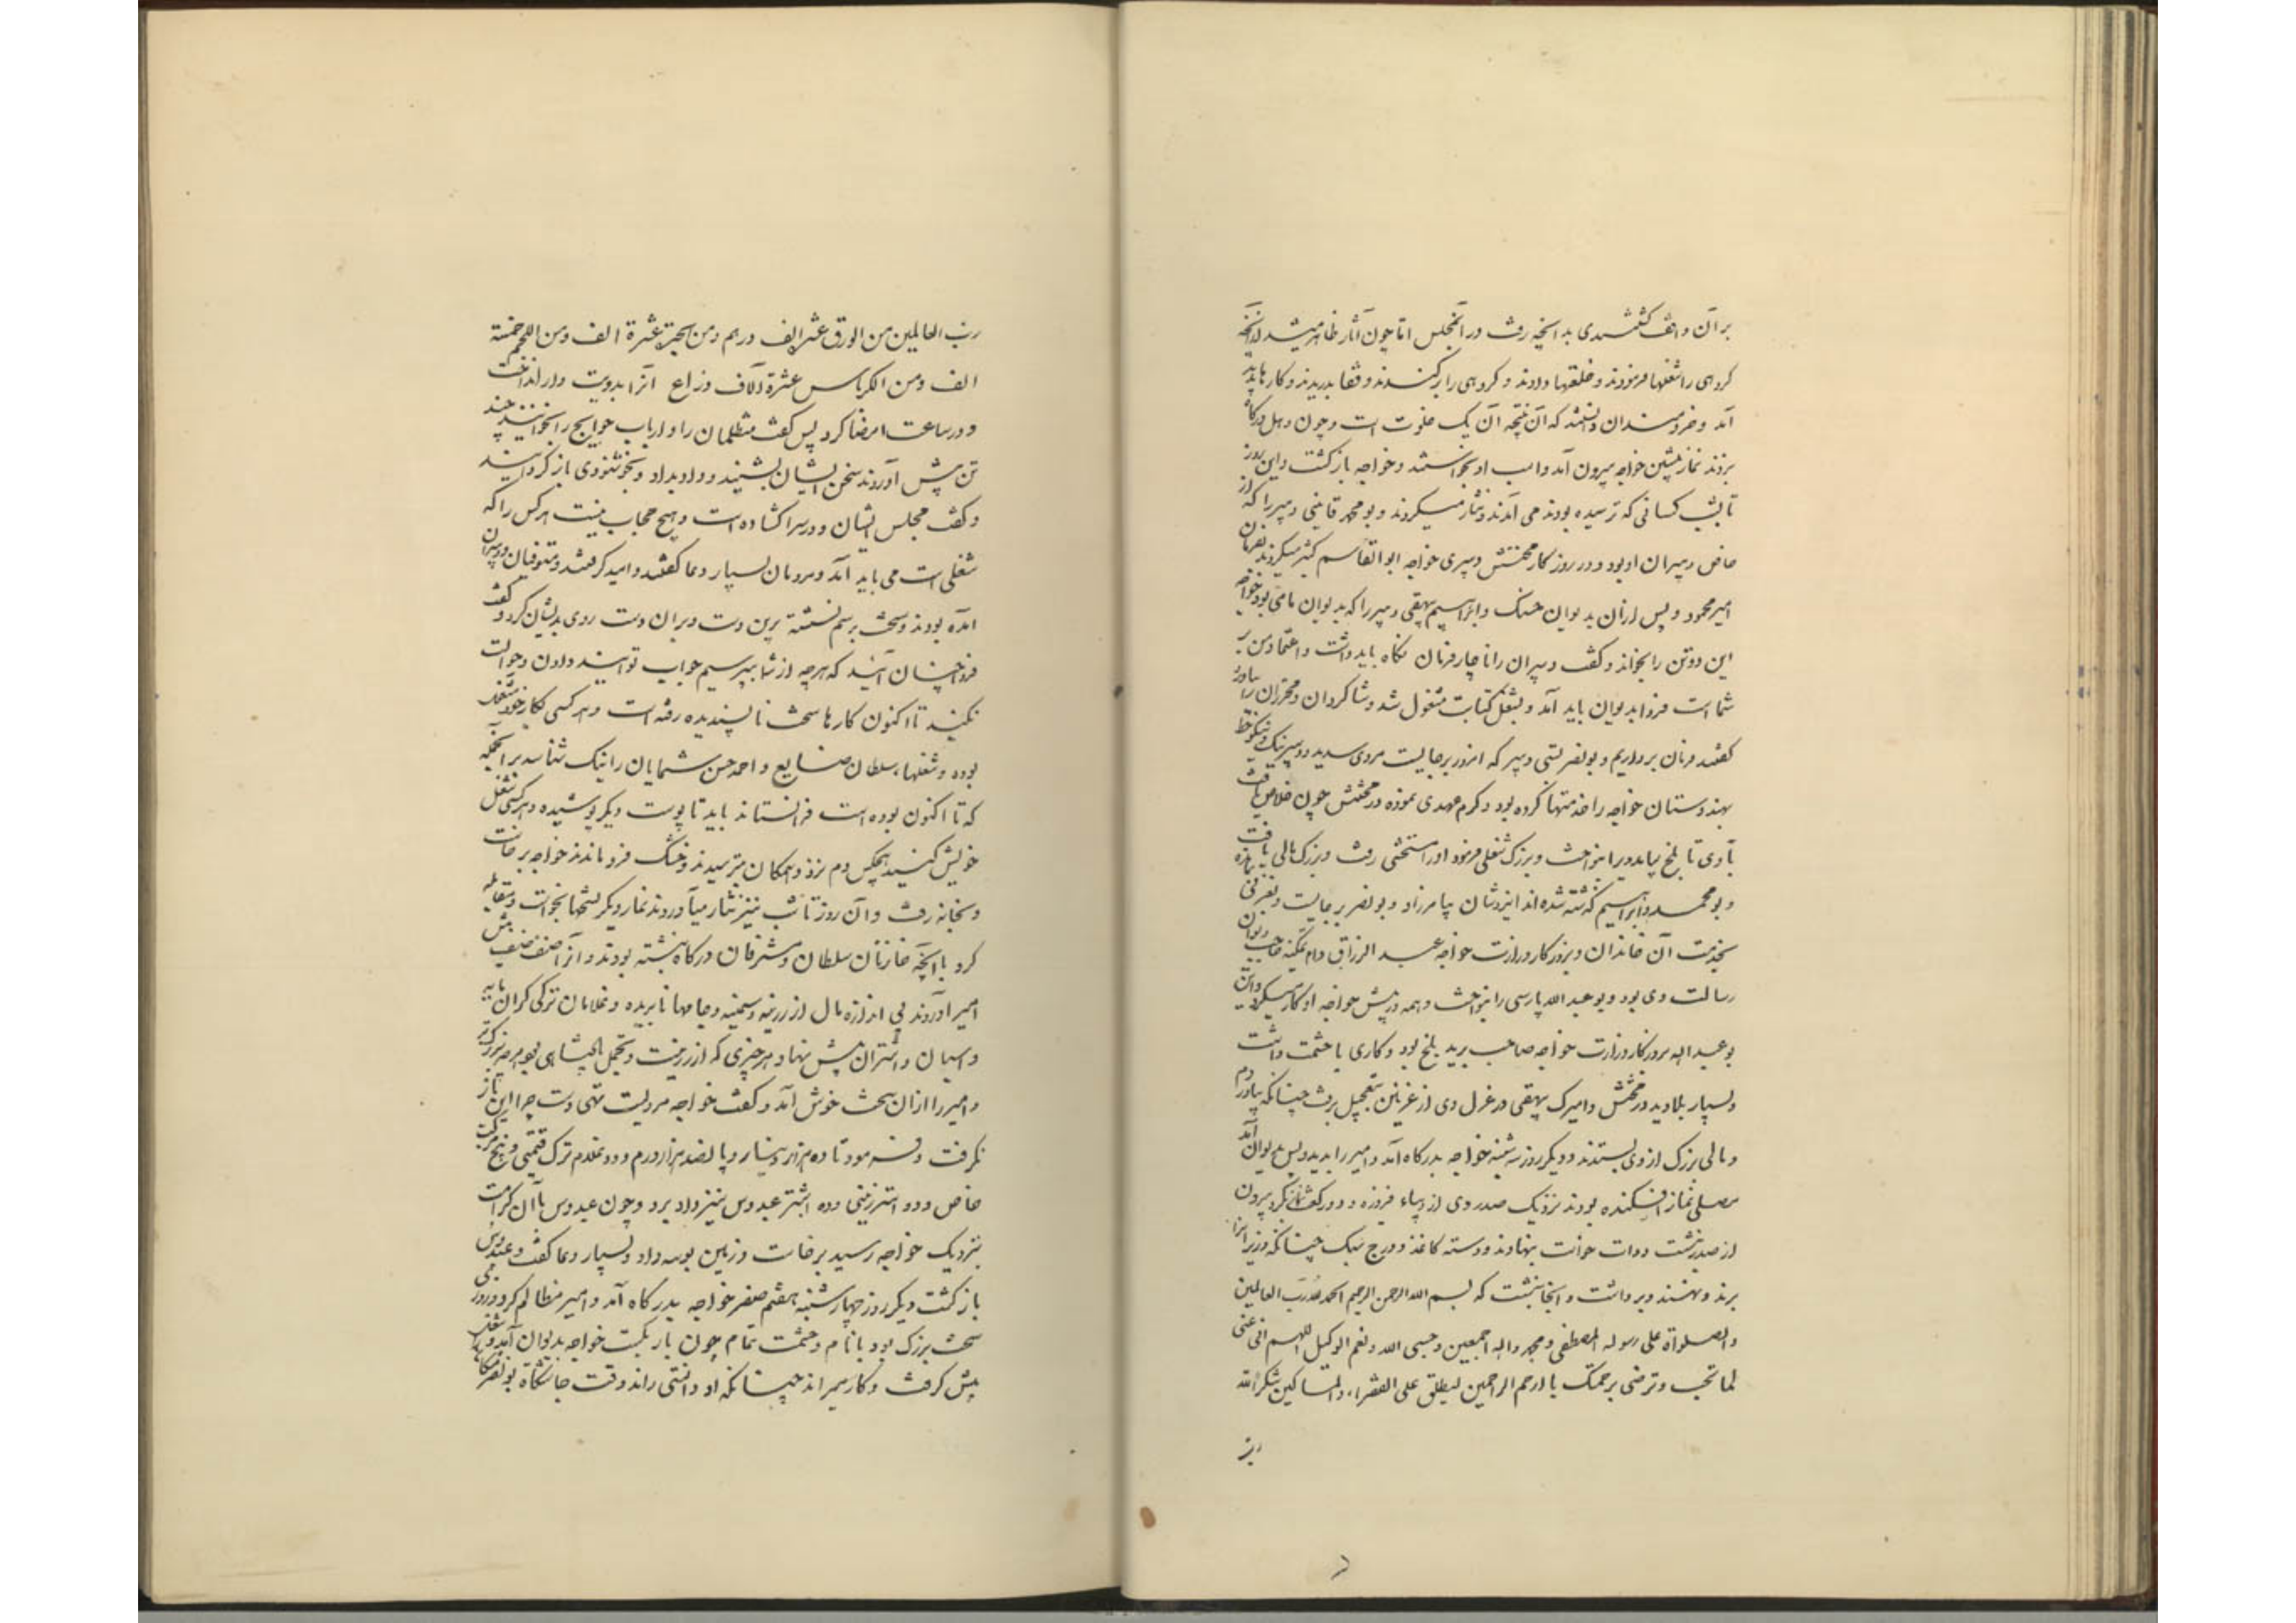 بر آن واقف گشتندی بدانچه رفت در آنمجلس اما چون آثار ظاهر میشد از آنچه
گروهی را شغلها فرمودند و خلعتها دادند و گروهی را برکندند و قفا بدریدند و کارها پدید
آمد و خردمندان دانستند که آن نتیجه آن یک خلوت است و چون دهل درگاه
بزدند نماز پیشین خواجه بیرون آمد و اسب او بخواستند و خواجه بازگشت و این روز
تا بشب کسانی که ترسیده بودند می آمدند و نثار میکردند و بو محمد قاینی دبیر را که از
خاص دبیران او بود و در روزگار محنتش دبیری خواجه ابوالقاسم کثیر میکردند بفرمان
امیر محمود و پس ازان بدیوان حسنک و ابراهیم بیهقی دبیر را که بدیوان ما می بود خواجه
این دو تن را بخواند و گفت دبیران را ناچار فرمان نگاه باید داشت و اعتماد من بر
شما است فردا بدیوان باید آمد و بشغل کتابت مشغول شد و شاگردان و محرران را بیاورد
گفتند فرمان برداریم و بو نصر بستی دبیر که امروز بر جایست مردی سدید و دبیر نیک و نیکوخط
بهندوستان خواجه را خدمتها کرده بود و کرم عهدی نموده در محنتش چون خلاص یافت
با وی تا بلخ بیامد ویرا بنواخت و بزرگ شغلی فرمود او را مستحثی رفت و بزرگ مالی یافت
و بو محمد و ابراهیم گذشته شده اند ایزدشان بیامرزاد و بو نصر بر جایست و بغزنی بمانده
بخدمت آن خاندان و بروزگار وزارت خواجه عبد الرزاق دام تمکینه صاحب دیوان
رسالت وی بود و بو عبد الله پارسی را بنواخت و همه در پیش خواجه او کار میکرد و این
بو عبد الله بروزگار وزارت خواجه صاحب برید بلخ بود و کاری با حشمت داشت
و بسیار بلا دید در محنتش و امیرک بیهقی در عزل وی از غزنین بتعجیل برفت چنانکه بیاوردم
و مالی بزرگ از وی بستدند و دیگر روز سه شنبه خواجه بدرگاه آمد و امیر را بدید و پس بدیوان آمد
مصلی نماز افکنده بودند نزدیک صدر وی از دیباء فیروزه و دو رکعت نماز بکرد و بیرون
از صدر بنشست دوات خواست بنهادند و دسته کاغذ و درج سبک چنانکه وزیران را
برند و نهند و برداشت و آنجا نبشت که بسم الله الرحمن الرحیم الحمد لله رب العالمین
والصلواة علی رسوله المصطفی محمد و اله اجمعین و حسبی الله و نعم الوکیل اللهم اعنی
لما تحب و ترضی برحمتک یا ارحم الراحمین لیطلق علی الفقراء والمساکین شکرا لله
رب
رب العالمین من الورق عشر الف درهم و من الخبز عشرة الف و من اللحم خمسة
الف و من الکرباس عشرة آلاف ذراع آنرا بدویت دار انداخت
و در ساعت امضا کرد پس گفت متظلمان را و ارباب حوایج را بخوانند چند
تن پیش آوردند سخن ایشان بشنید و داد بداد و بخوشنودی باز گردانید
و گفت مجلس ایشان و در سرا گشاده است و هیچ حجاب نیست هر کس را که
شغلی است می باید آمد و مردمان بسیار دعا گفتند و امید گرفتند و مستوفیان و دبیران
آمده بودند و سخت برسم نشسته برین دست و بران دست روی بدیشان کرد و گفت
فردا چنان آئید که هر چه از شما بپرسیم جواب توانید دادن و حوالت
نکنید تا اکنون کارها سخت ناپسندیده رفته است و هر کسی بکار خود مشغول
بوده و شغلها سلطان ضایع و احمد حسن شمایان را نیک شناسد بر آنجمله
که تا اکنون بوده است فرانستاند باید تا پوست دیگر پوشیده و هر کسی شغل
خویش کنید هیچکس دم نزد و همگان بترسیدند و خشک فرو ماندند خواجه برخاست
و بخانه رفت و آن روز تا شب نیز نثار میآوردند نماز دیگر نسختها بخواست و مقابله
کرد با آنچه خازنان سلطان و مشرفان درگاه نبشته بودند و آنرا صنف صنف پیش
امیر آوردند بی اندازه مال از زرینه و سیمینه و جامها نابریده و غلامان ترکی گران مایه
و اسپان و اشتران پیش بنهاد و هر چیزی که از زینت و تجمل پادشاهی بود هر چه بزرگتر
و امیر را ازان سخت خوش آمد و گفت خواجه مردیست تهی دست چرا این باز
نگرفت و فرمود تا ده هزار دینار و پانصد هزار درم و دو غلام ترک قیمتی و پنج مرکب
خاص و دو استر زینی و ده اشتر عبدوس نیز داد برد و چون عبدوس باآن کرامت
بنزدیک خواجه رسید برخاست و زمین بوسه داد و بسیار دعا گفت و عبدوس
بازگشت دیگر روز چهارشنبه هفتم صفر خواجه بدرگاه آمد و امیر مظالم کرد و روزی
سخت بزرگ بود با نام و حشمت تمام چون بار بگست خواجه بدیوان آمد و شغل
پیش گرفت و کار میراند چنانکه او دانستی راند وقت چاشتگاه بو نصر مشکان را